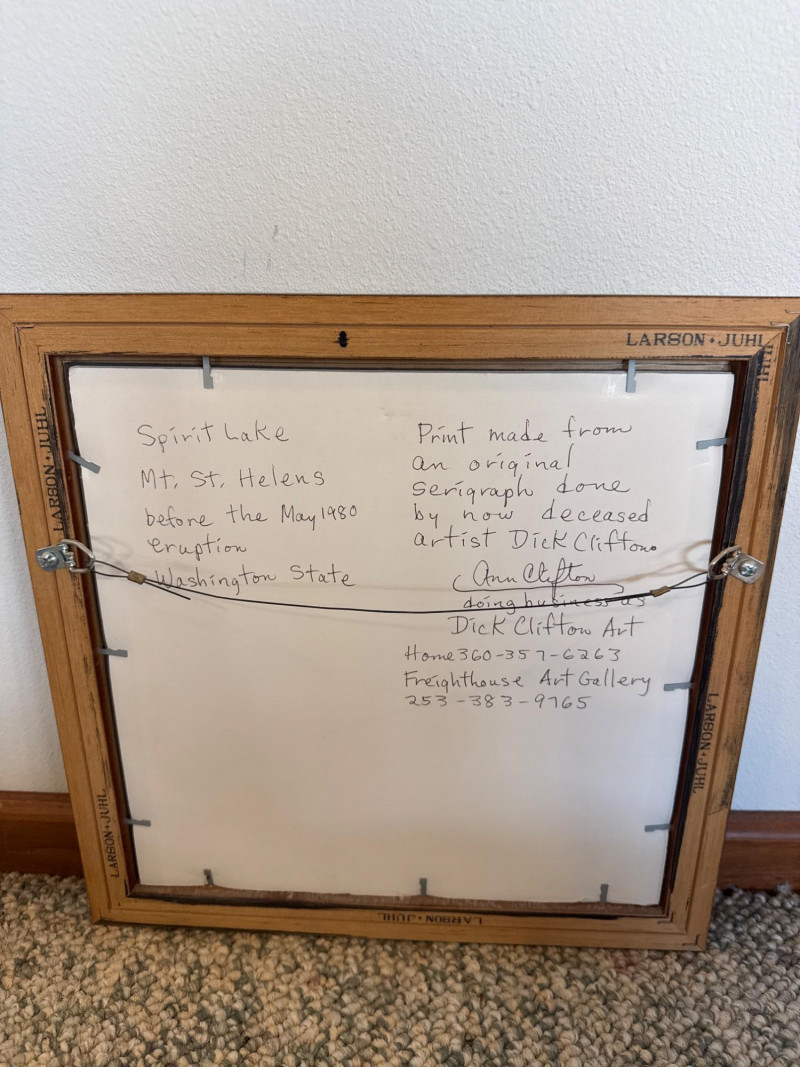 LARSON • JUHL
LARSON • JUHL
Spirit Lake
Mt. St. Helens
before the May 1980
eruption
Washington State
Print made from
an original
serigraph done
by now deceased
artist Dick Clifton.
Ann Clifton
doing business as
Dick Clifton Art
Home 360-357-6263
Freighthouse Art Gallery
253-383-9765
LARSON • JUHL
LARSON • JUHL
LARSON • JUHL
JUHL